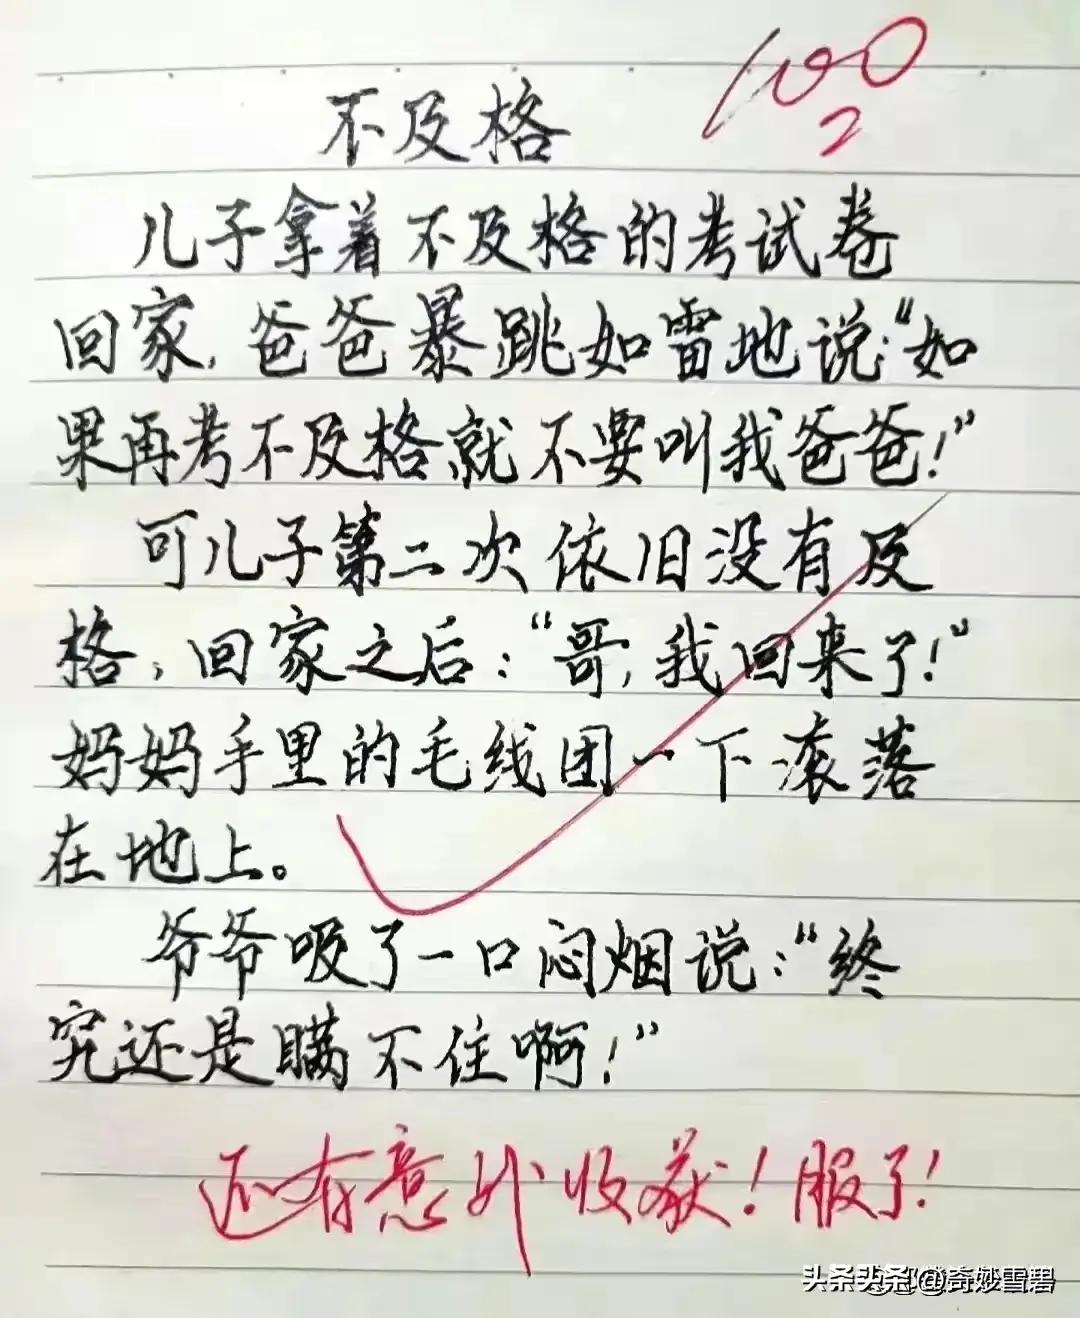 100
2
不及格
儿子拿着不及格的考试卷
回家,爸爸暴跳如雷地说:“如
果再考不及格就不要叫我爸爸!”
可儿子第二次依旧没有及
格,回家之后:“哥,我回来了!”
妈妈手里的毛线团一下滚落
在地上。
爷爷吸了一口闷烟说:“终
究还是瞒不住啊!”
还有意外收获!服了!
头条 @奇妙雪碧